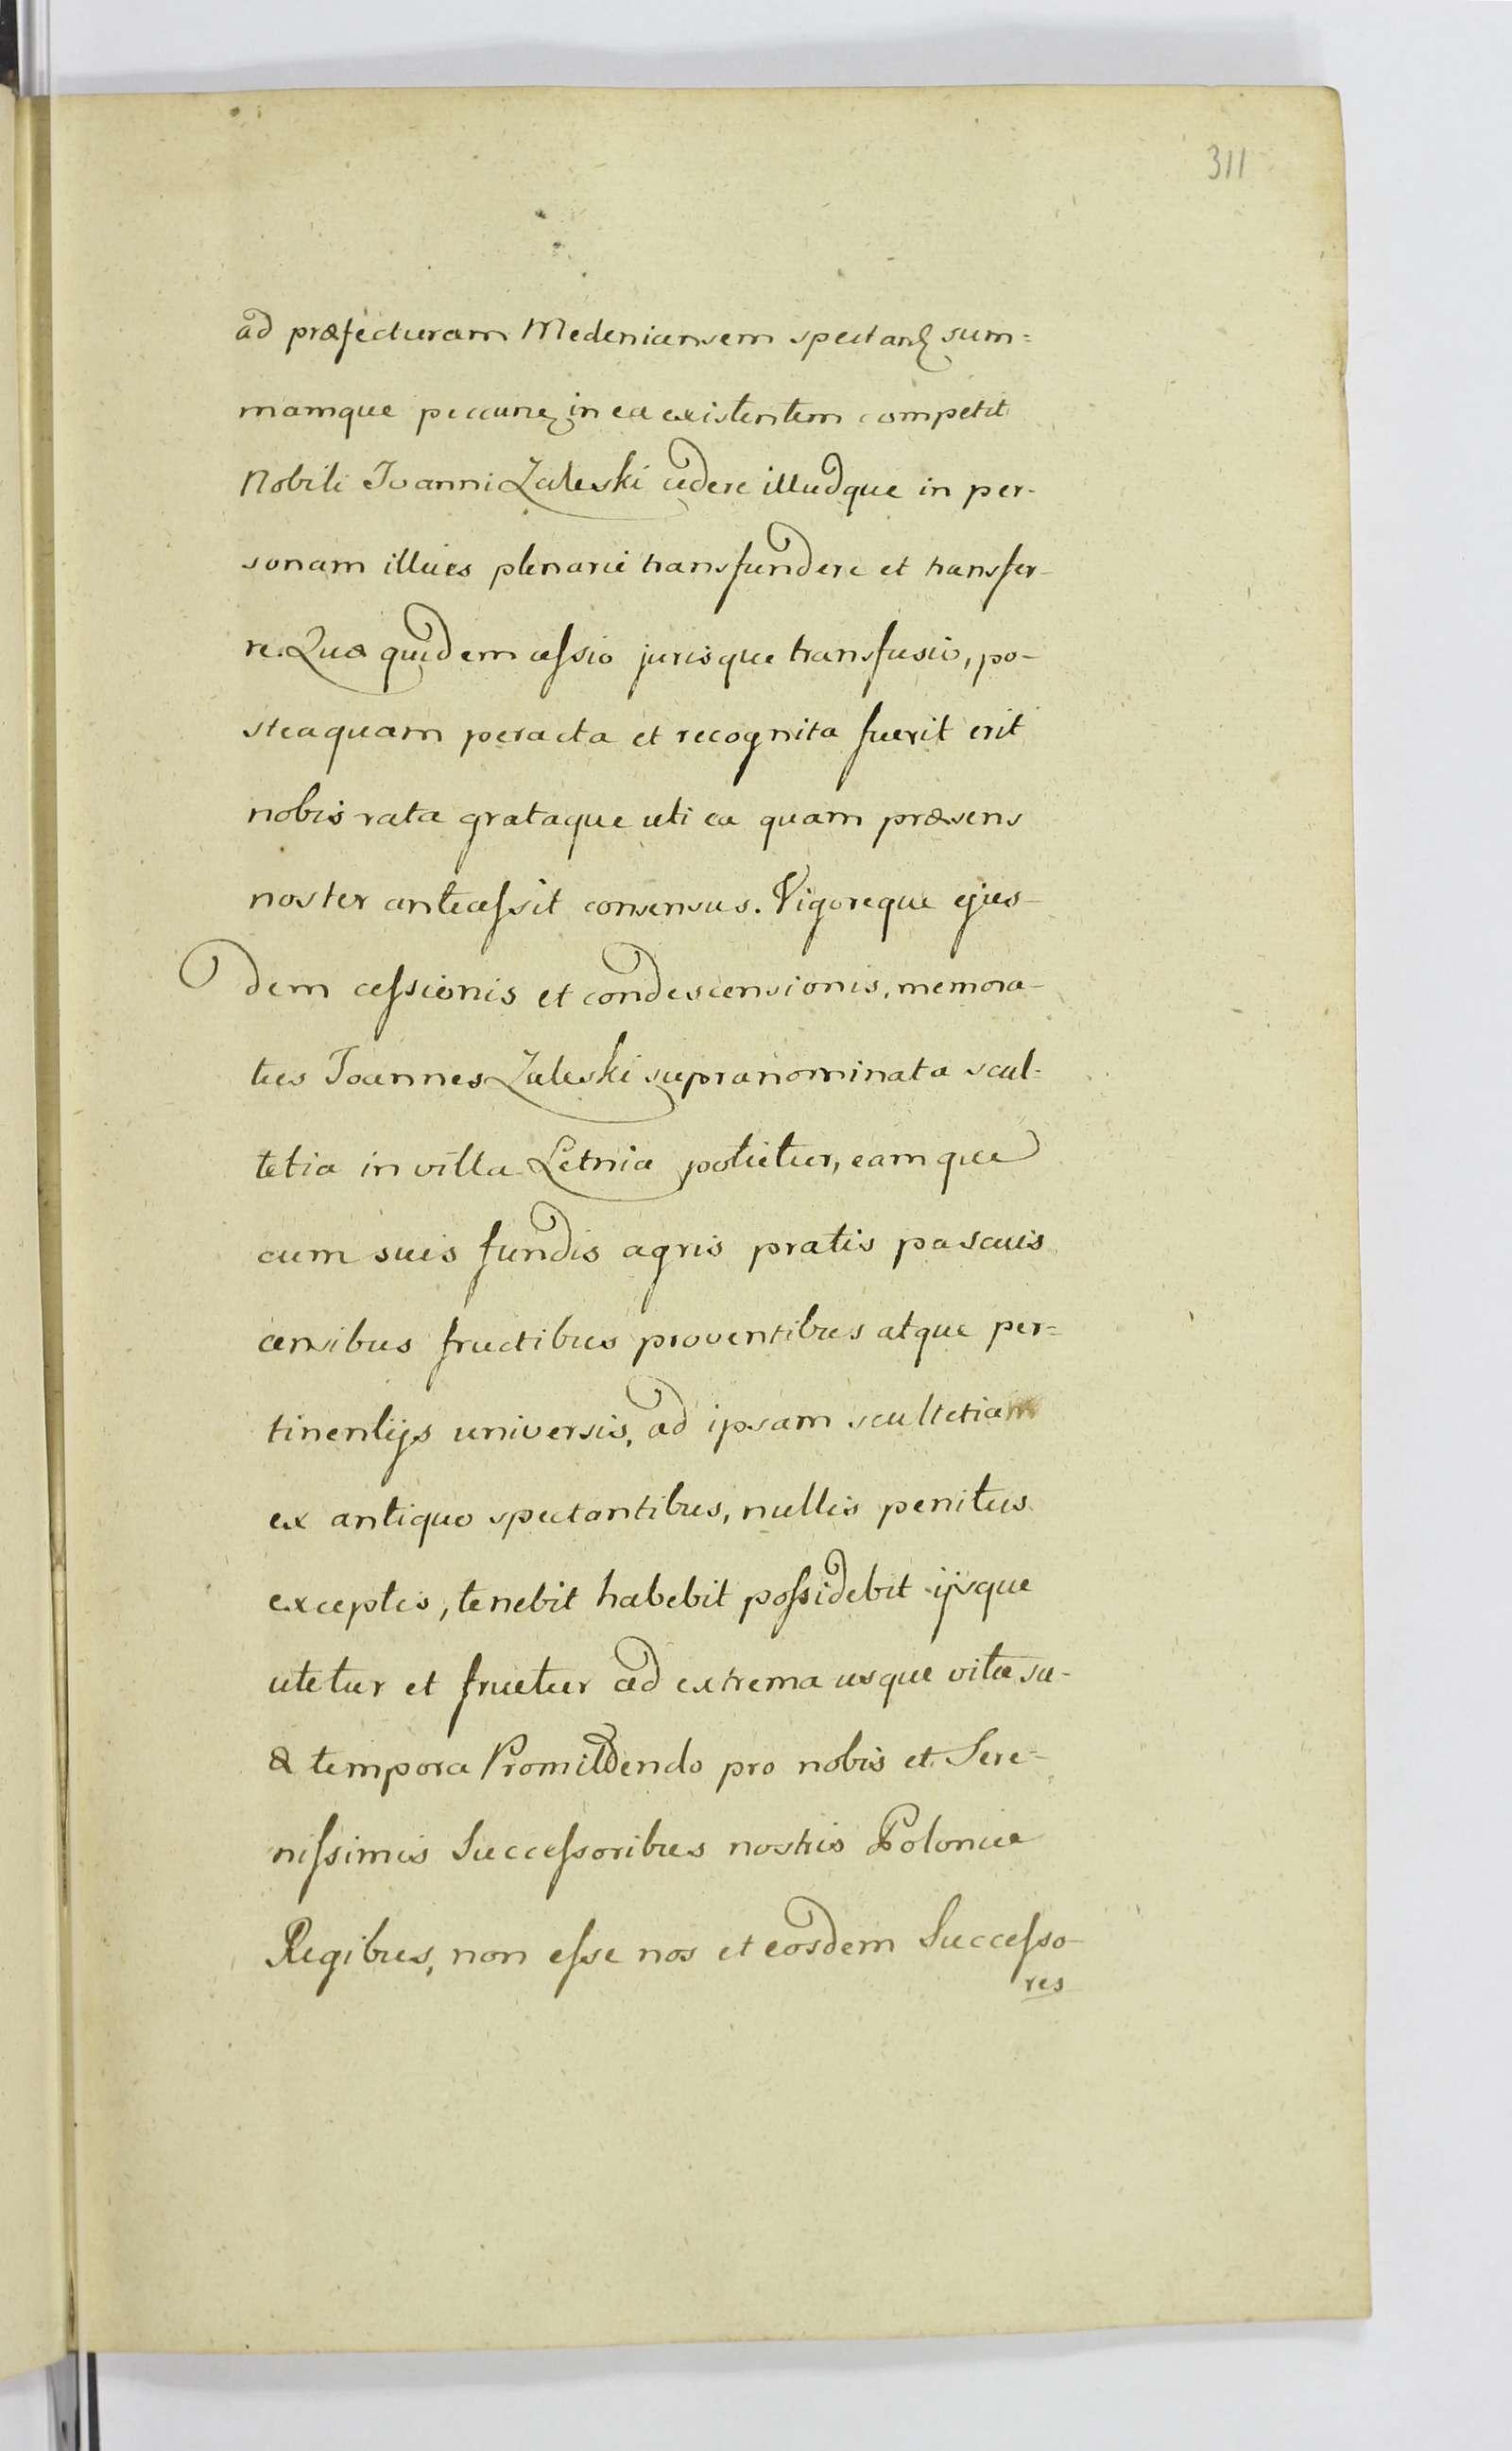 311
ad præfecturam Medenicensem spectanʒ sum=
mamque pecunię in ea existentem competit
Nobili Joanni Zaleski cedere illudque in per-
sonam illius plenarie transfundere et transfer-
re. Quæ quidem ceſsio jurisque transfusio, po-
steaquam peracta et recognita fuerit erit
nobis rata grataque uti ea quam præsens
noster anteceſsit consensus. Vigoreque ejus-
dem ceſsionis et condescensionis, memora-
tus Joannes Zaleski supranominata scul-
tetia in villa Letnia potietur, eamque
cum suis fundis agris pratis pascuis
censibus fructibus proventibus atque per=
tinentijs universis, ad ipsam scultetiam
ex antiquo spectantibus, nullis penitus
exceptis, tenebit habebit poſsidebit ijsque
utetur et fruetur ad extrema usque vitæ su-
æ tempora Promittendo pro nobis et Sere=
niſsimis Succeſsoribus nostris Poloniæ
Regibus, non eſse nos et eosdem Succeſso-
res